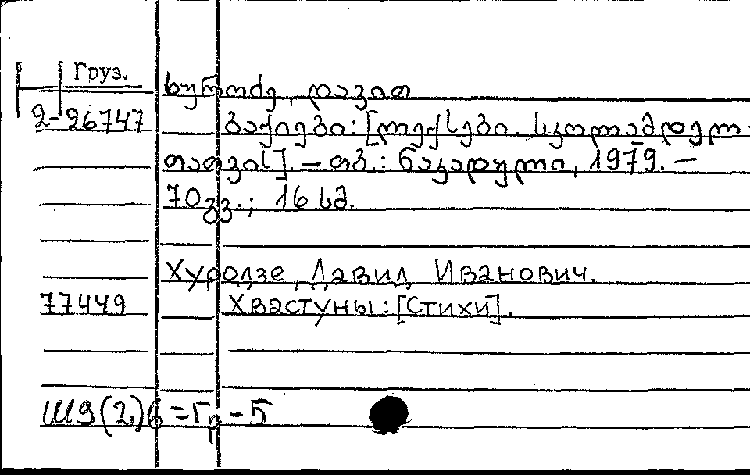 Груз.
ხუროძე, დავით
2-26747 ბაქიები: [ლექსები. სკოლამდელ
თათვის]. – თბ.: ნაკადული, 1979. –
70 გვ.; 16 სმ.
Хуродзе, Давид Иванович.
77449 Хвастуны: [Стихи].
Ш9(2)6=Гр-5